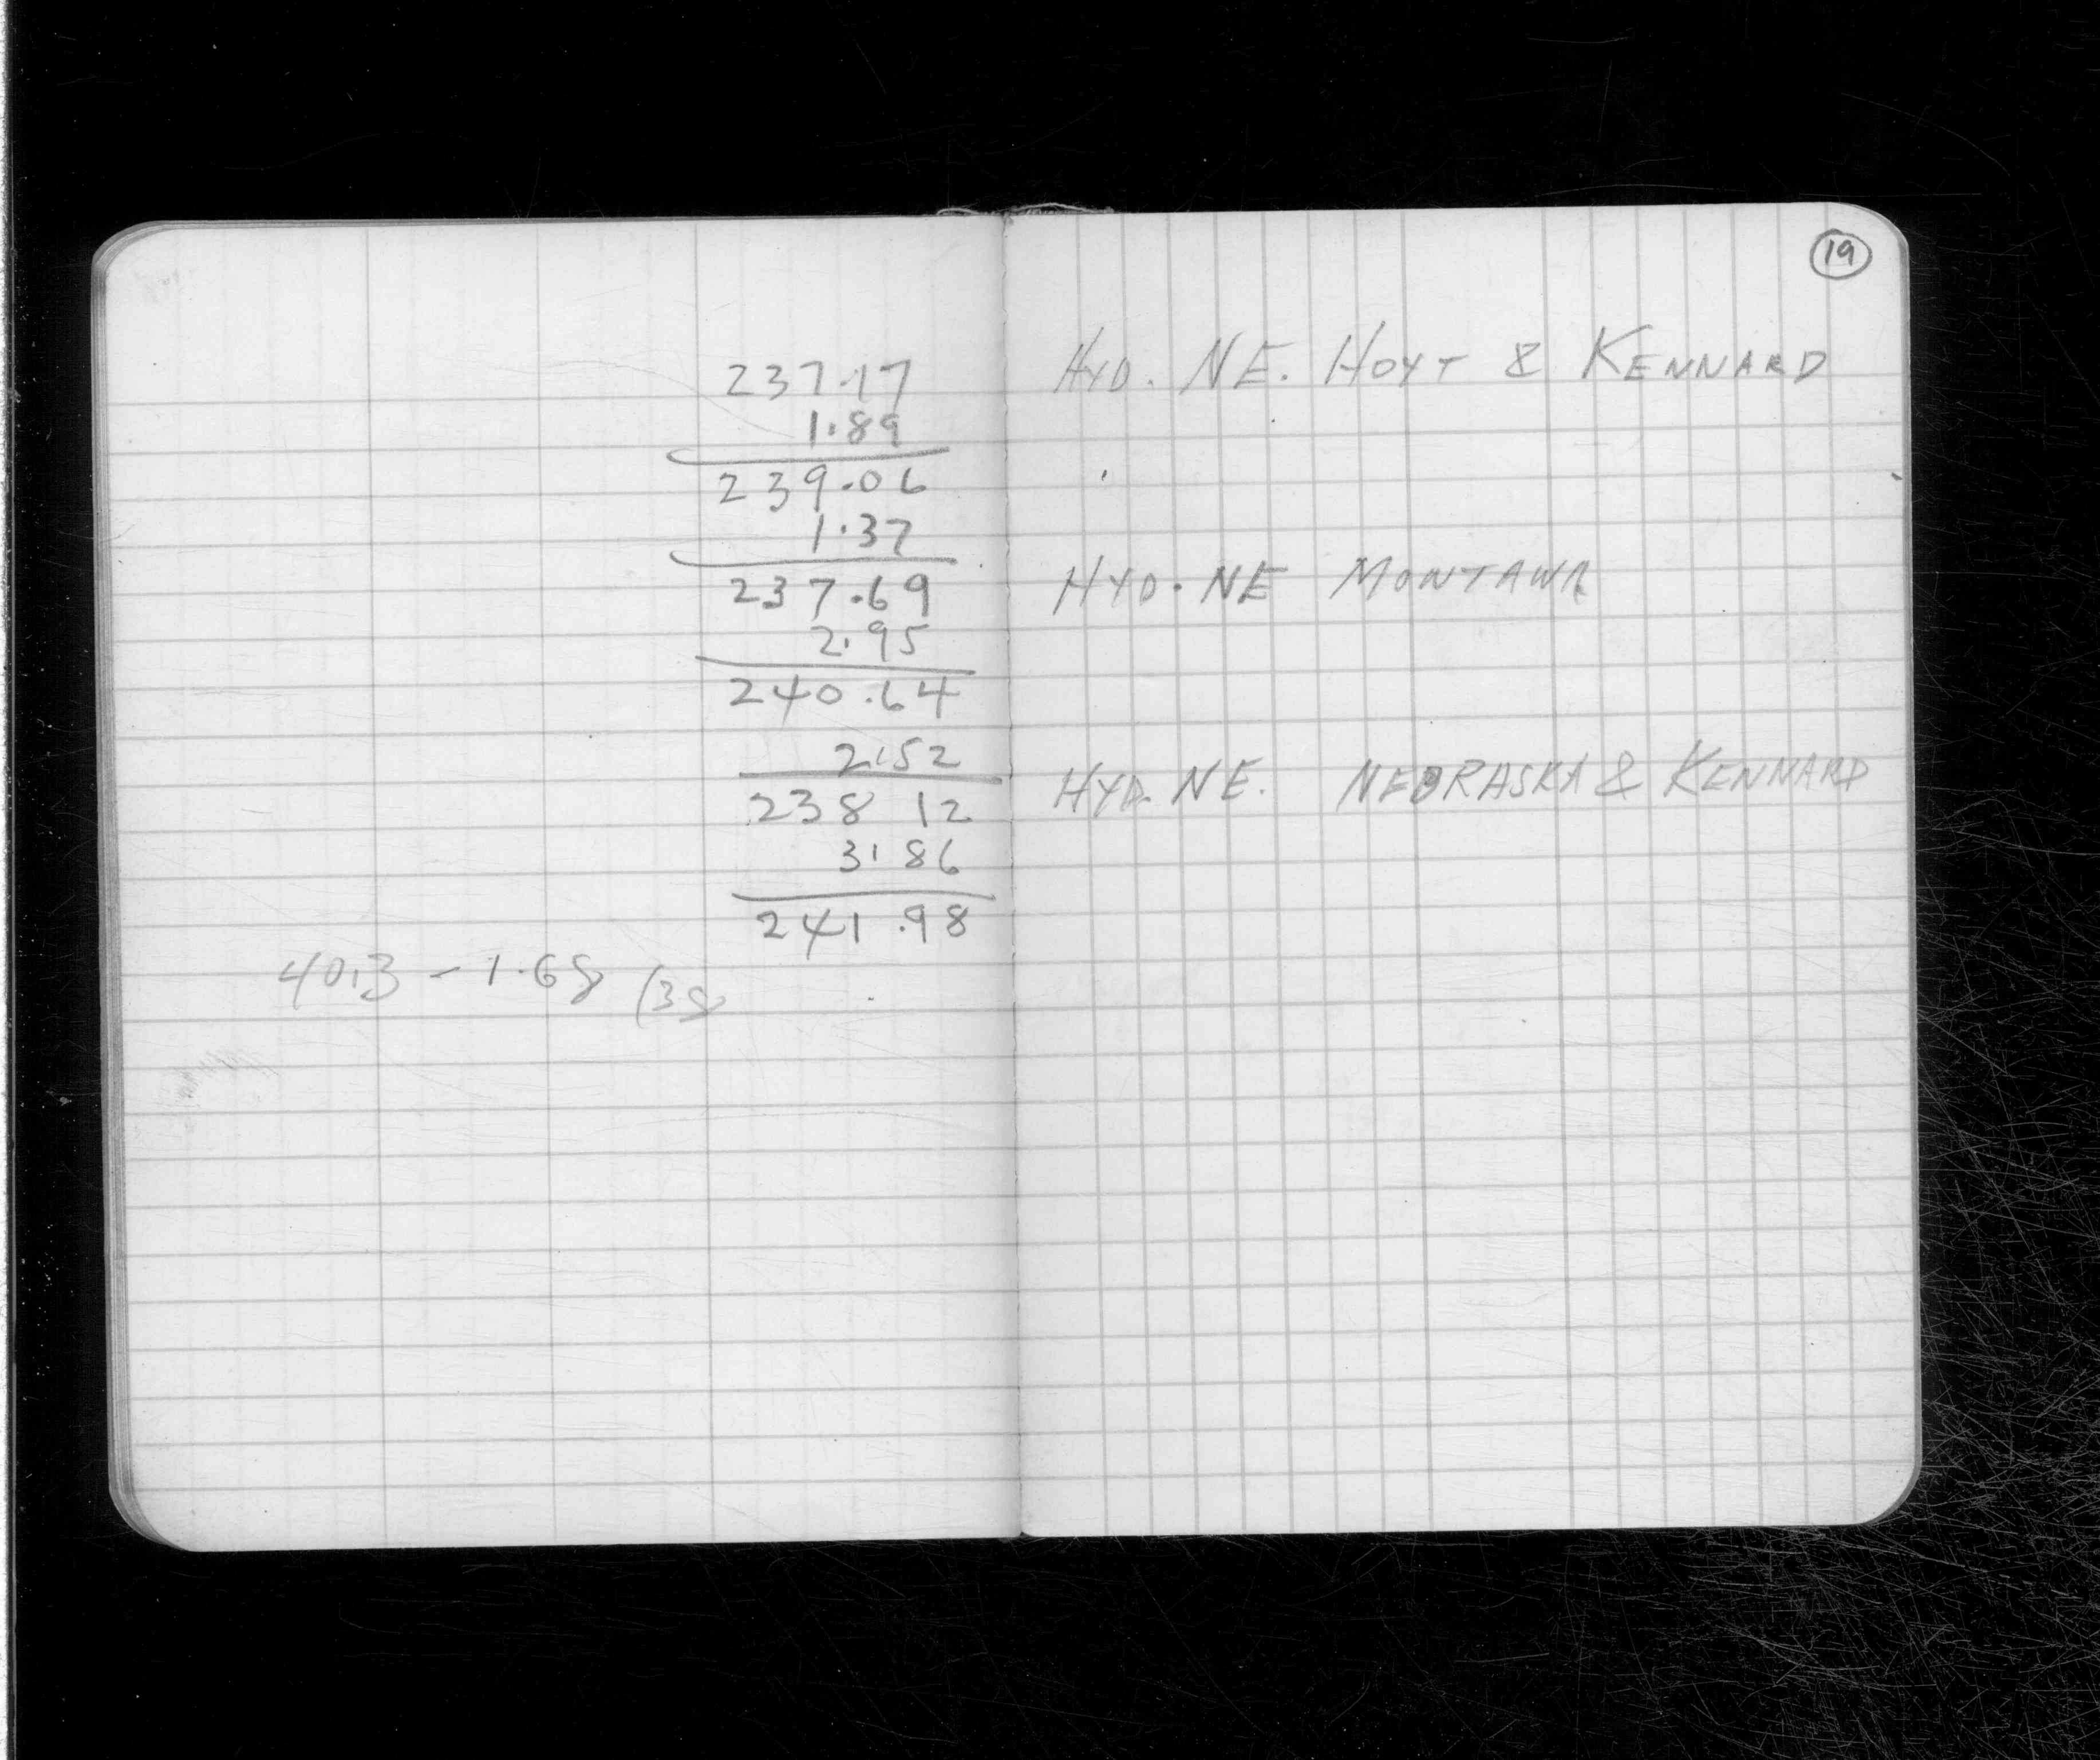 19
237.17 HYD. NE. HOYT & KENNARD
1.89
239.06
1.37
237.69 HYD. NE MONTANA
2.95
240.64
2.52
238 12 HYD. NE. NEBRASKA & KENNARD
3.86
241.98
40.3 - 1.68 (38